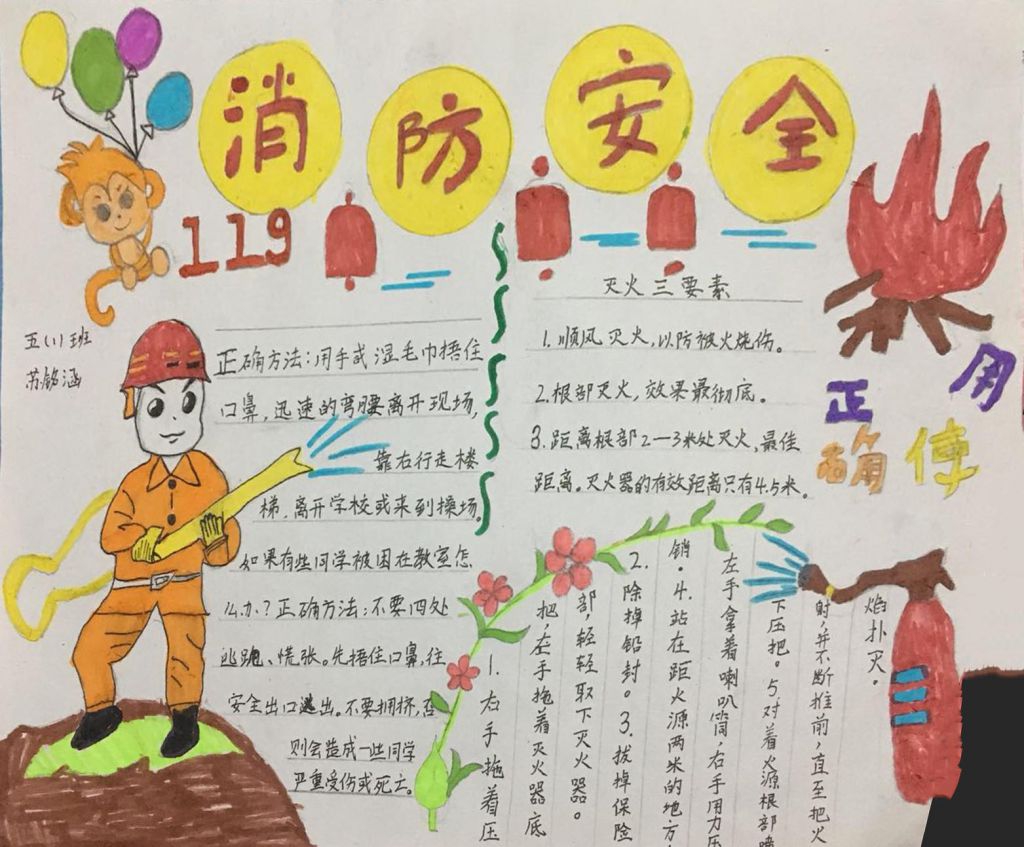 消防安全
119
五(1)班
苏铭涵
正确方法:用手或湿毛巾捂住
口鼻,迅速的弯腰离开现场,
靠右行走楼
梯,离开学校或来到操场。
如果有些同学被困在教室怎
么办?正确方法:不要四处
逃跑、慌张。先捂住口鼻,往
安全出口逃出。不要拥挤,否
则会造成一些同学
严重受伤或死亡。
灭火三要素
1.顺风灭火,以防被火烧伤。
2.根部灭火,效果最彻底。
3.距离根部2—3米处灭火,最佳
距离。灭火器的有效距离只有4.5米。
正确使用
1.右手拖着压
把,左手拖着灭火器底
部,轻轻取下灭火器。
2.除掉铅封。3.拔掉保险
销。4.站在距火源两米的地方
左手拿着喇叭筒,右手用力压
下压把。5.对着火源根部喷
射,并不断推前,直至把火
焰扑灭。